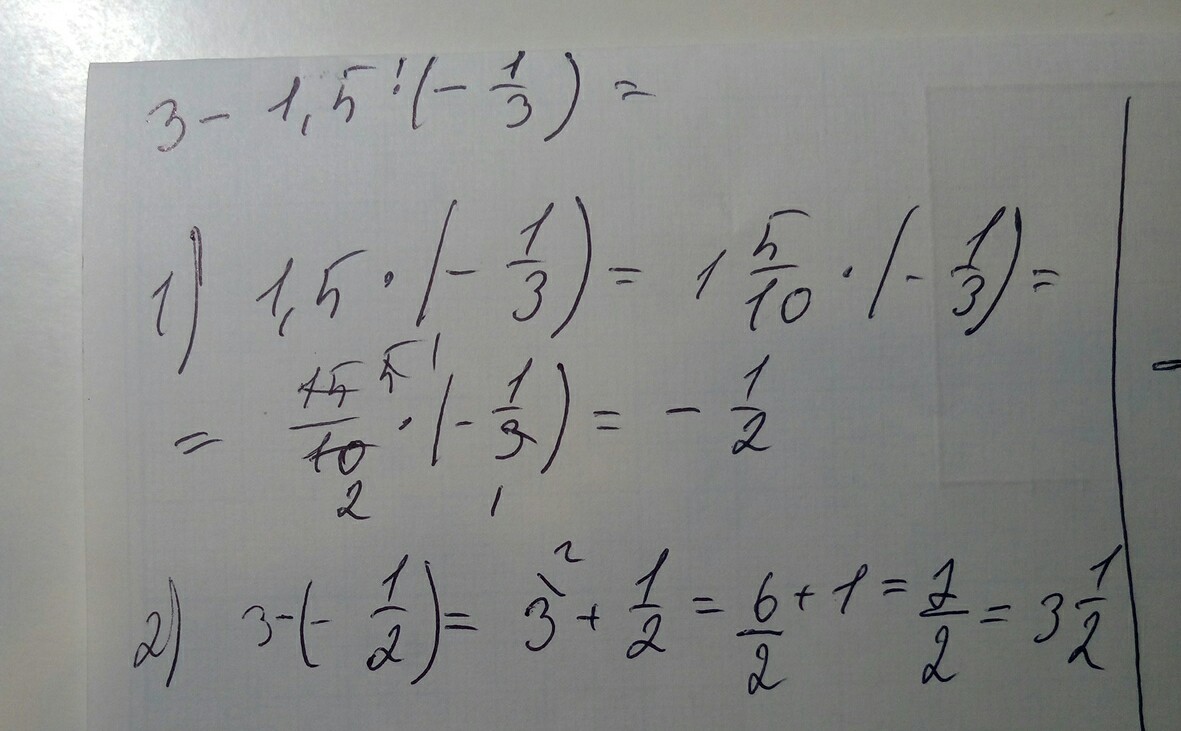 3 - 1,5 : (- 1/3) =
1) 1,5 · (- 1/3) = 1 5/10 · (- 1/3) =
= 15/10 5 1 · (- 1/3) = - 1/2
2 1
2) 3 - (- 1/2) = 3 2 + 1/2 = 6/2 + 1 = 7/2 = 3 1/2